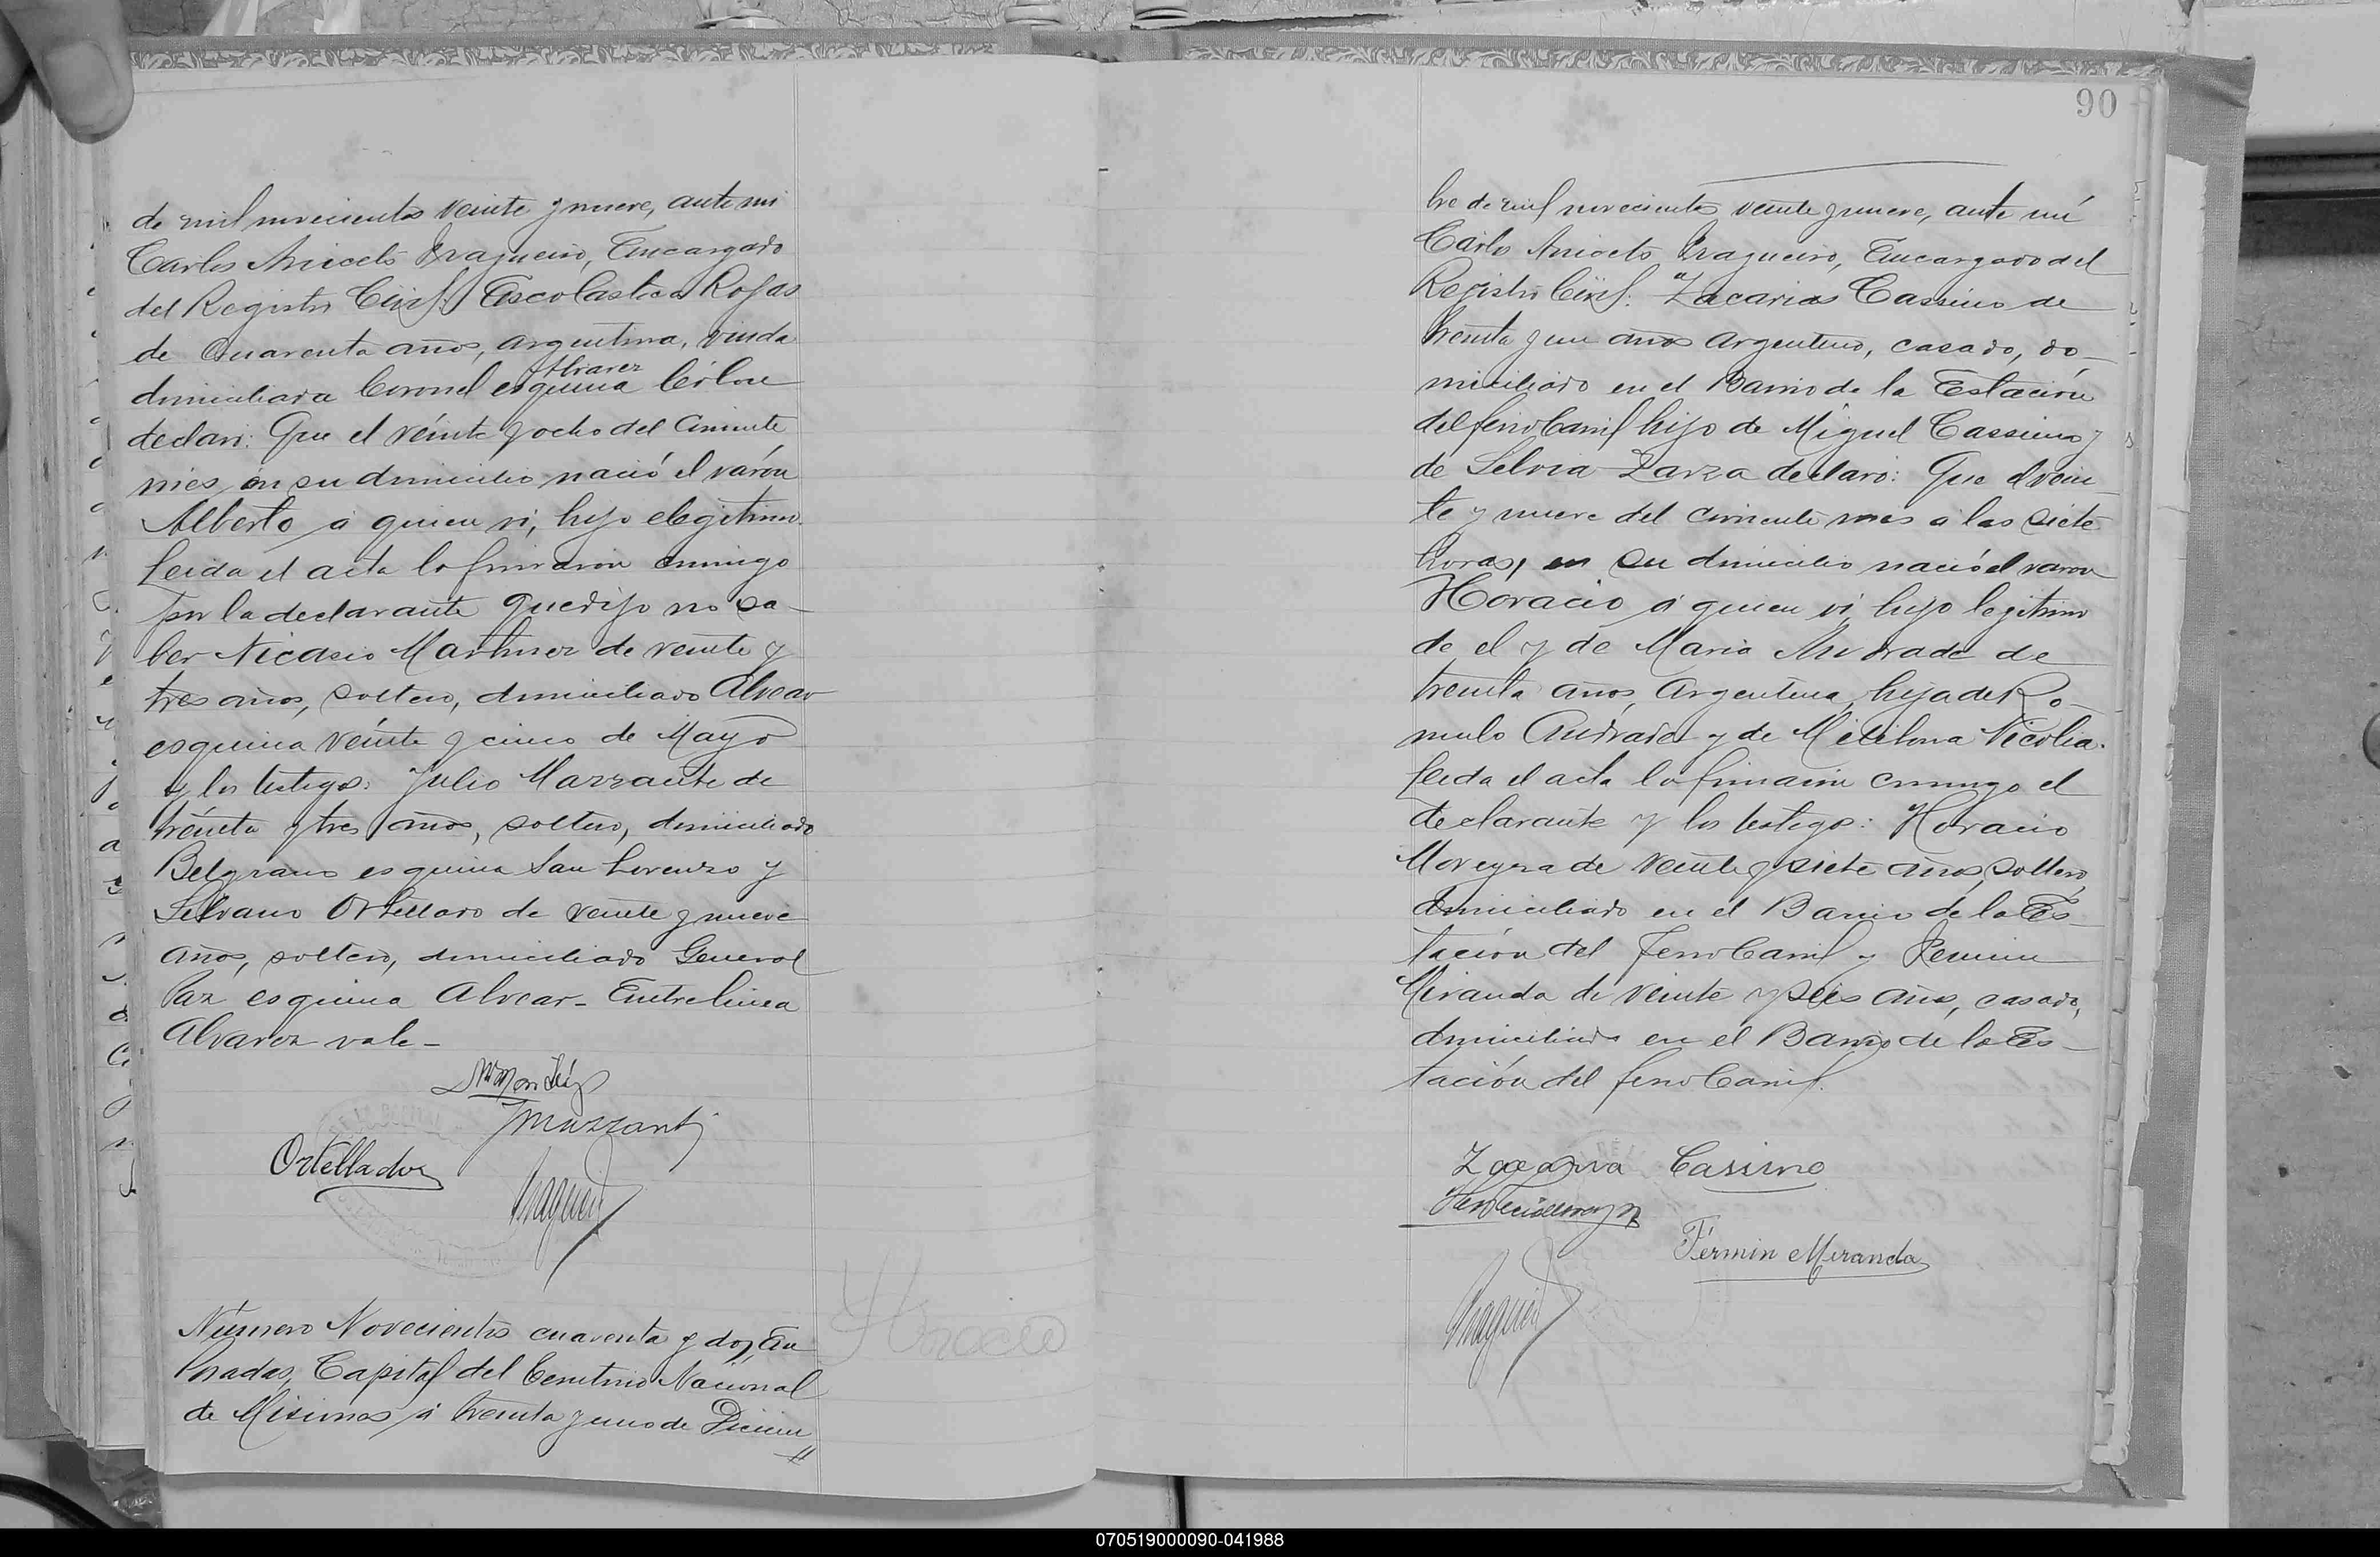 de mil novecientos veinte y nueve, ante mi
Carlos Aniceto Fragueiro, Encargado
del Registro Civil: Escolastica Rojas
de cuarenta años, argentina, viuda
Alvarez
domiciliada Coronel esquina Colon
declaró: Que el veinte y ocho del corriente
mes, en su domicilio nació el varón
Alberto a quien vi, hijo elegitimo.
Leida el acta la firmaron conmigo
por la declarante que dijo no sa-
ber Nicasio Martinez de veinte y
tres años, soltero, domiciliado Alvear
esquina veinte y cinco de Mayo
y los testigos: Julio Mazzante de
treinta y tres años, soltero, domiciliado
Belgrano esquina San Lorenzo y
Silvano Ortellado de veinte y nueve
años, soltero, domiciliado General
Paz esquina Alvear- Entrelinea
Alvarez vale-
JMazzanti
Ortellado
Fragueiro
Número Novecientos cuarenta y dos, En
Posadas, Capital del Territorio Nacional
de Misiones, a treinta y uno de Diciem
Horacio
90
bre de mil novecientos veinte y nueve, ante mí
Carlos Aniceto Fragueiro, Encargado del
Registro Civil: Zacarias Cassino de
treinta y un años argentino, casado, do-
miciliado en el Barrio de la Estación
del ferro Carril hijo de Miguel Cassino y
de Selvia Zarza declaró: Que el vein-
te y nueve del corriente mes a las siete
horas, en su domicilio nació el varon
Horacio a quien vi, hijo legitimo
de el y de Maria Andrade de
treinta años, Argentina, hija de Ro-
mulo Andrade y de Nicolia.
Leida el acta la firmaron conmigo el
declarante y los testigos: Horacio
Moreyra de veinte y siete años, soltero,
domiciliado en el Barrio de la Es-
tación del Ferro Carril y Fermin
Miranda de veinte y seis años, casado,
domiciliado en el Barrio de la Es-
tación del ferro Carril.
Casimo
Fermin Miranda
Fragueiro
070519000090-041988